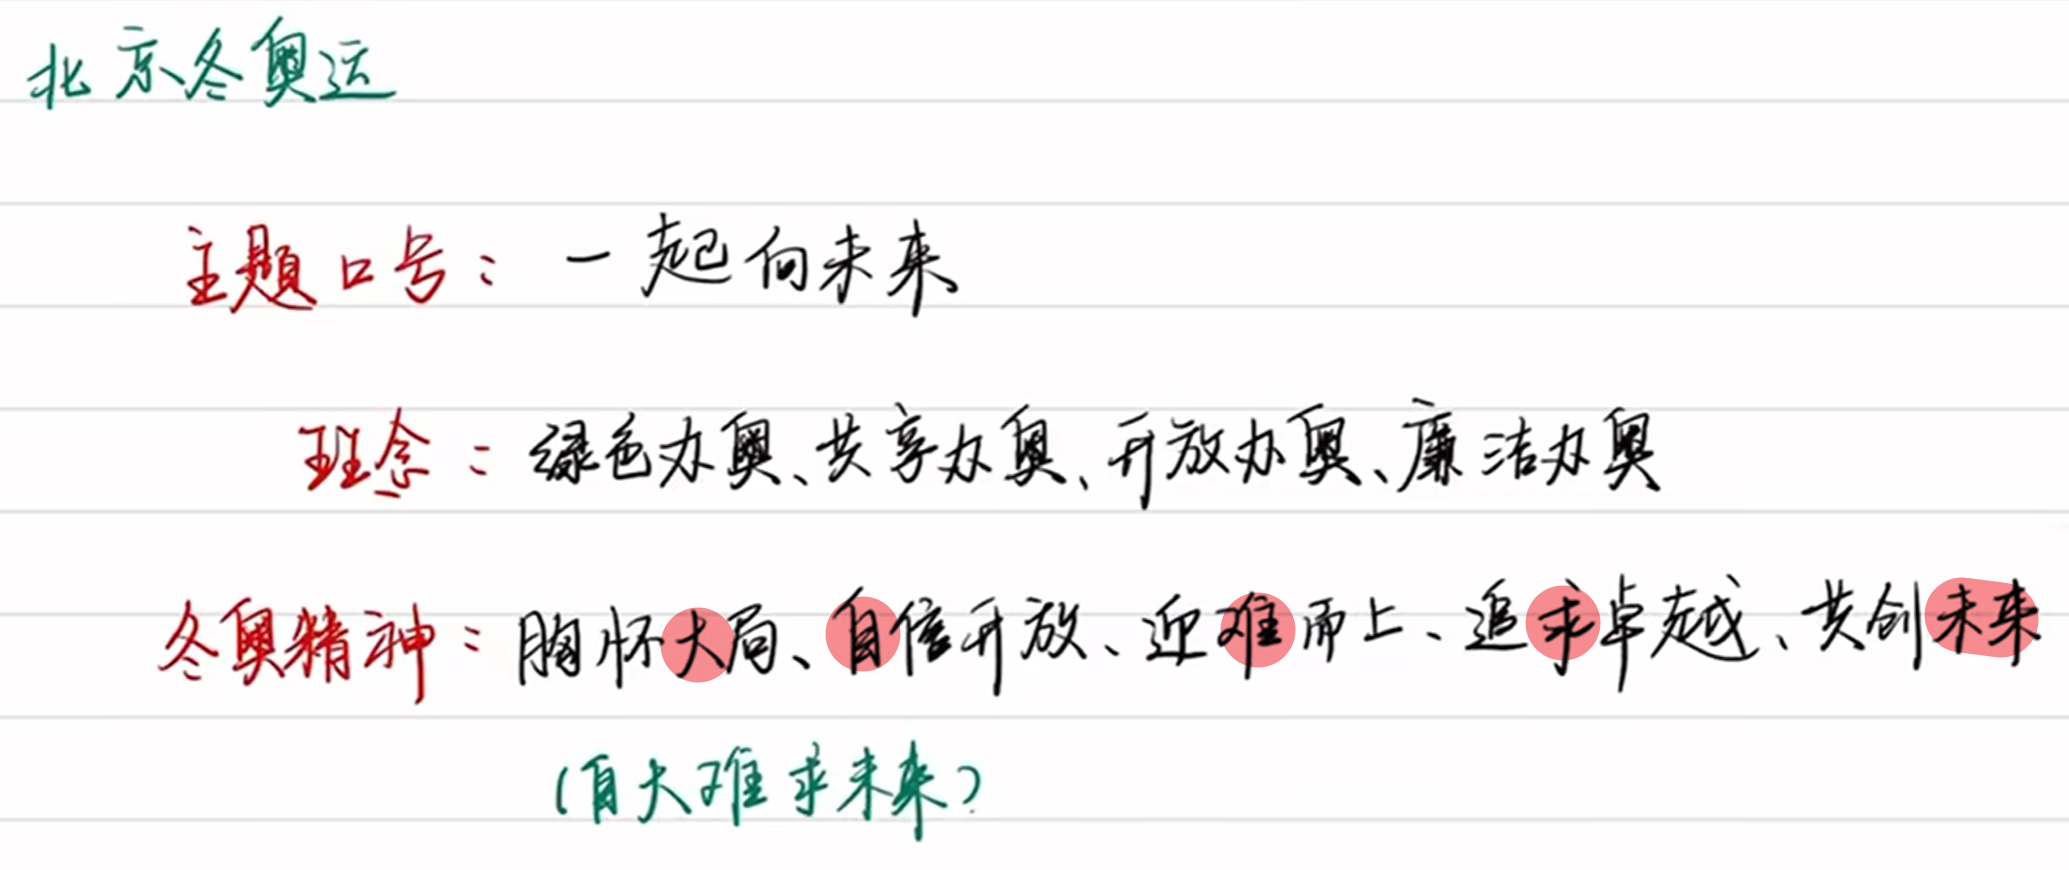 北京冬奥运
主题口号：一起向未来
理念：绿色办奥、共享办奥、开放办奥、廉洁办奥
冬奥精神：胸怀大局、自信开放、迎难而上、追求卓越、共创未来
（自大难求未来）